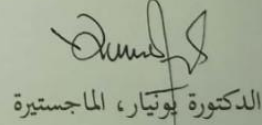 الدكتورة يونيار، الماجستيرة